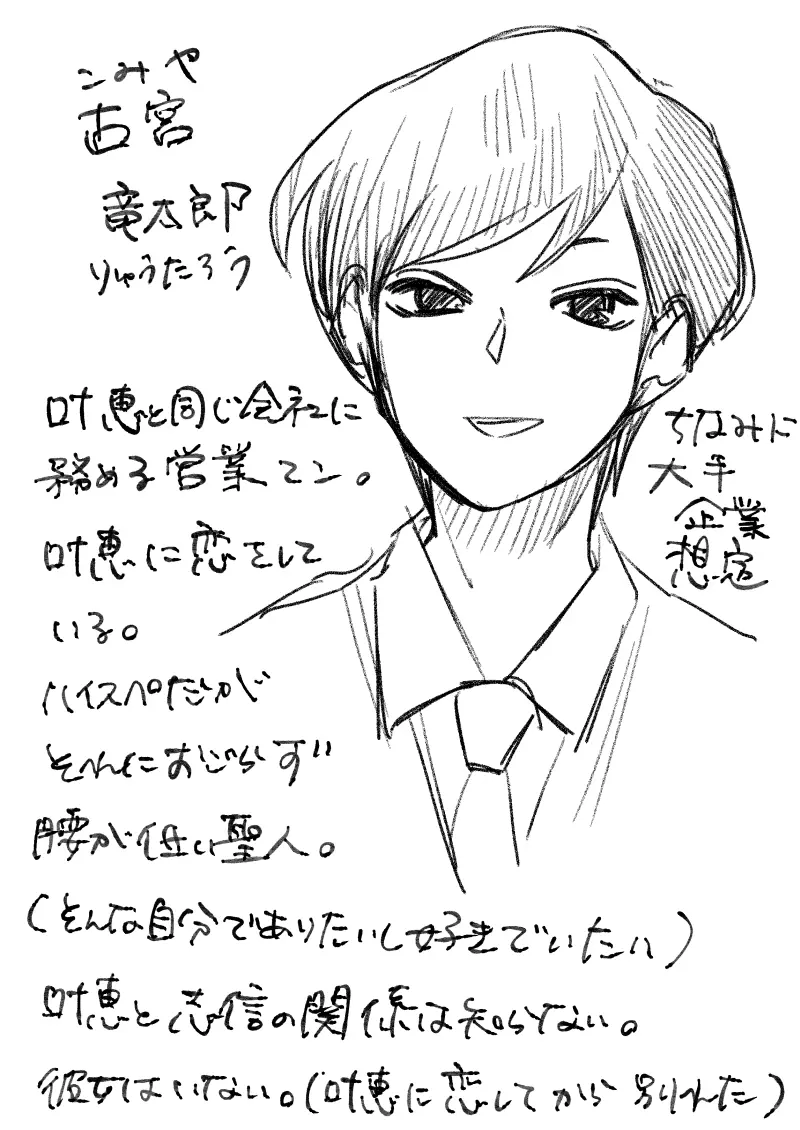 こみや
古宮
竜太郎
りゅうたろう
叶恵と同じ会社に
務める営業マン。
叶恵に恋をして
いる。
ハイスペだが
それにおごらず
腰が低い聖人。
(そんな自分でありたいし好きでいたい)
叶恵と志信の関係は知らない。
彼女はいない。(叶恵に恋してから別れた)
ちなみに
大手
企業
想定